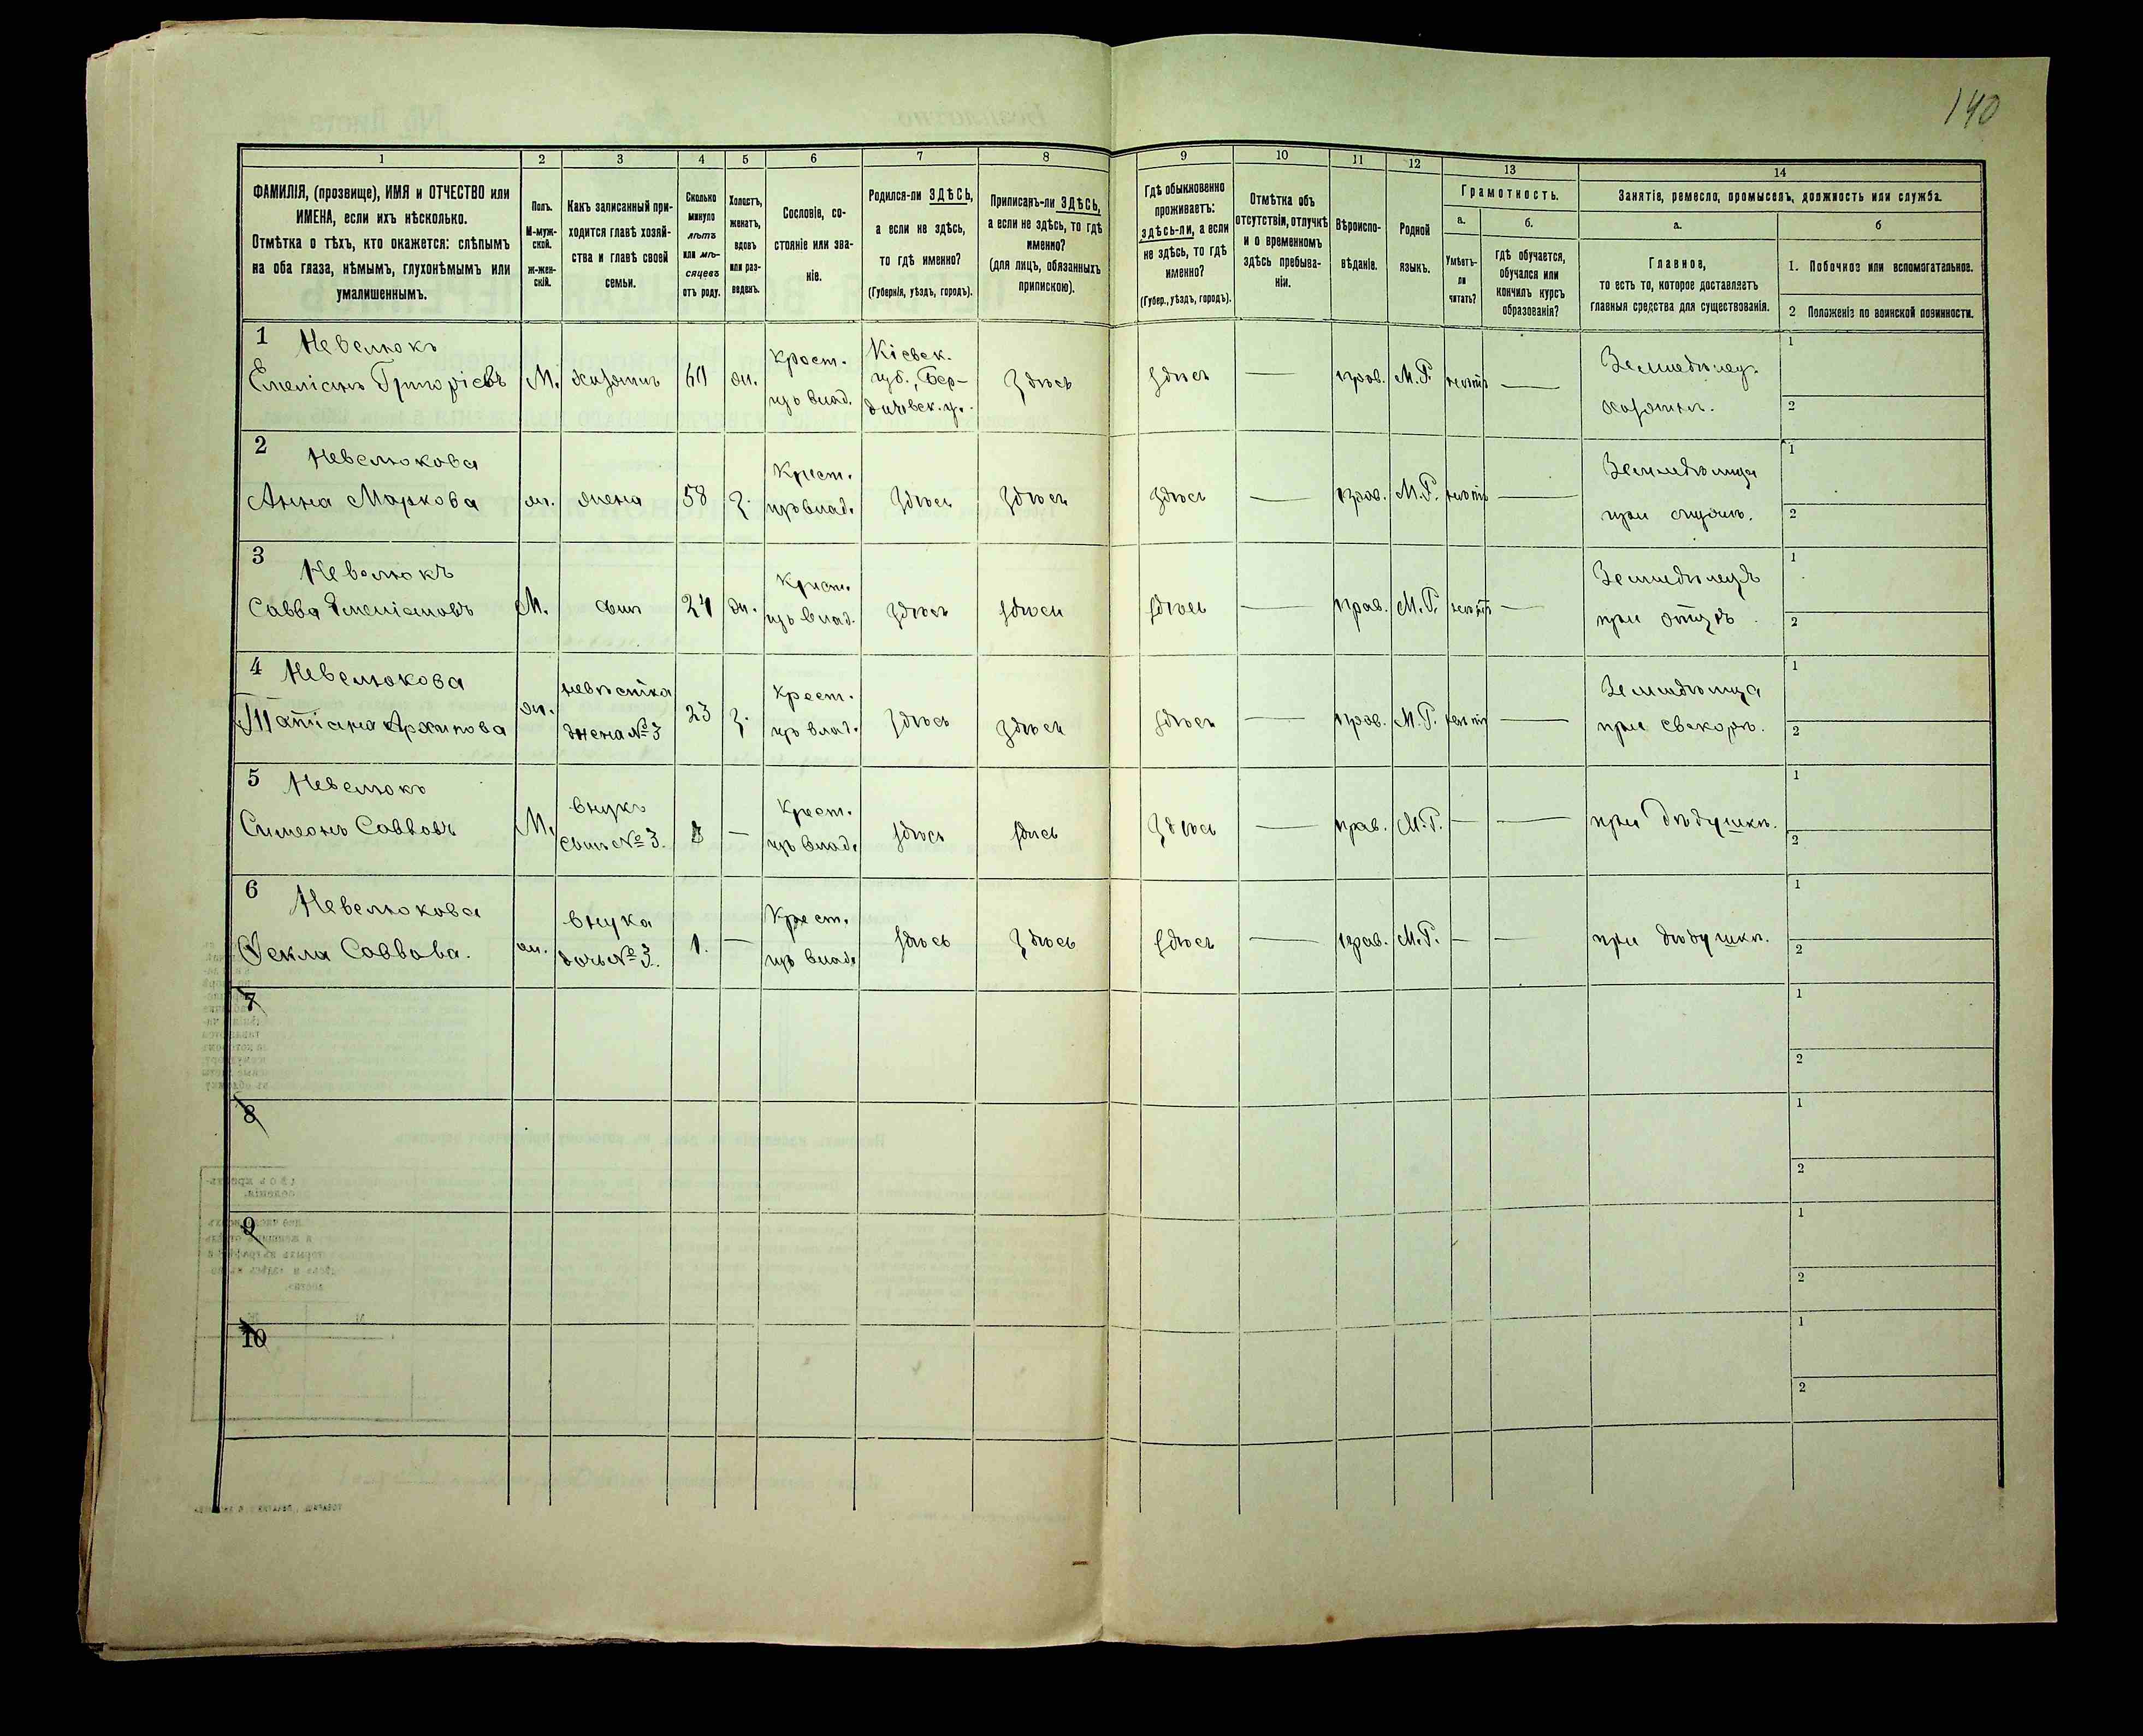 140
1
2
3
4
5
6
7
8
9
10
11
12
13
14
ФАМИЛІЯ, (прозвище), ИМЯ и ОТЧЕСТВО или
ИМЕНА, если ихъ нѣсколько.
Отмѣтка о тѣхъ, кто окажется: слѣпымъ
на оба глаза, нѣмымъ, глухонѣмымъ или
умалишеннымъ.
Полъ.
М-муж-
ской.
ж-жен-
скій.
Какъ записанный при-
ходится главѣ хозяй-
ства и главѣ своей
семьи.
Сколько
минуло
лѣтъ
или мѣ-
сяцевъ
отъ роду.
Холостъ,
женатъ,
вдовъ
или раз-
веденъ.
Сословіе, со-
стояніе или зва-
ніе.
Родился-ли ЗДѢСЬ,
а если не здѣсь,
то гдѣ именно?
(Губернія, уѣздъ, городъ).
Приписанъ-ли ЗДѢСЬ,
а если не здѣсь, то гдѣ
именно?
(для лицъ, обязанныхъ
припискою).
Гдѣ обыкновенно
проживаетъ:
здѣсь-ли, а если
не здѣсь, то гдѣ
именно?
(Губер., уѣздъ, городъ).
Отмѣтка объ
отсутствіи, отлучкѣ
и о временномъ
здѣсь пребыва-
ніи.
Вѣроиспо-
вѣданіе.
Родной
языкъ.
Грамотность.
а.
Умѣетъ-
ли
читать?
б.
Гдѣ обучается,
обучался или
кончилъ курсъ
образованія?
Занятіе, ремесло, промыселъ, должность или служба.
а.
Главное,
то есть то, которое доставляетъ
главныя средства для существованія.
б
1. Побочное или вспомогательное.
2 Положеніе по воинской повинности.
1 Невелюкъ
Емеліанъ Григоріевъ
М.
хозяинъ
жн.
Крест.
изъ влад.
Кіевск.
губ., Бер-
дичевск. у.
Здѣсь
здѣсь
—
прав.
М.Р.
нѣтъ
—
Земледѣлец.
хозяинъ.
1
2
2 Невелюкова
Анна Маркова
жн.
жена
58
з.
Крест.
изъ влад.
Здѣсь
Здѣсь
Здѣсь
—
прав.
М.Р.
нѣтъ
—
Земледѣлица
при мужѣ.
1
2
3 Невелюкъ
Савва Емеліановъ
М.
сынъ
24
жн.
Крест.
изъ влад.
Здѣсь
здѣсь
здѣсь
—
прав.
М.Р.
нѣтъ
—
Земледѣлецъ
при отцѣ
1
2
4 Невелюкова
Татіана Архипова
жн.
невѣстка
жена № 3
23
з.
Крест.
изъ влад.
Здѣсь
Здѣсь
здѣсь
—
прав.
М.Р.
нѣтъ
—
Земледѣлица
при свекорѣ.
1
2
5 Невелюкъ
Симеонъ Саввовъ
М.
внукъ
сынъ № 3.
—
Крест.
изъ влад.
здѣсь
здѣсь
Здѣсь
—
прав.
М.Р.
—
—
при дѣдушкѣ.
1
2
6 Невелюкова
Ѳекла Саввова.
жн.
внука
дочь № 3.
1.
—
Крест.
изъ влад.
здѣсь
Здѣсь
здѣсь
—
прав.
М.Р.
—
—
при дѣдушкѣ.
1
2
7
1
2
8
1
2
9
1
2
10
1
2